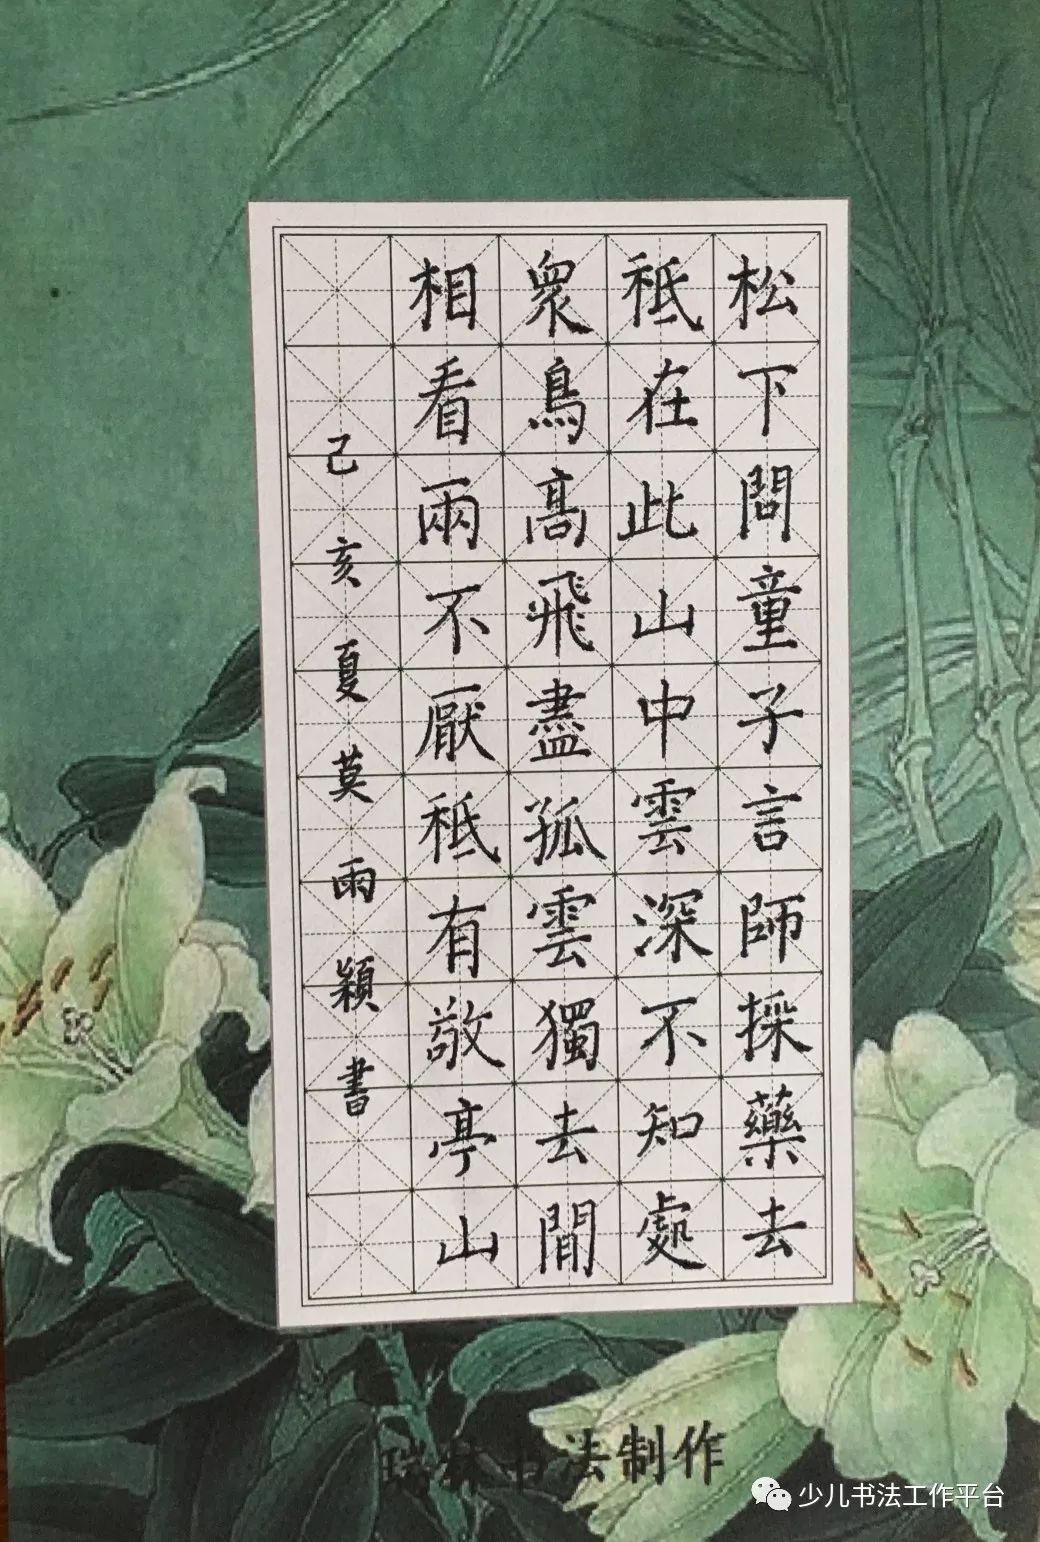 松下問童子言師採藥去
祗在此山中雲深不知處
衆鳥高飛盡孤雲獨去閒
相看兩不厭祗有敬亭山
己亥夏莫雨穎書
瑞林书法制作
少儿书法工作平台